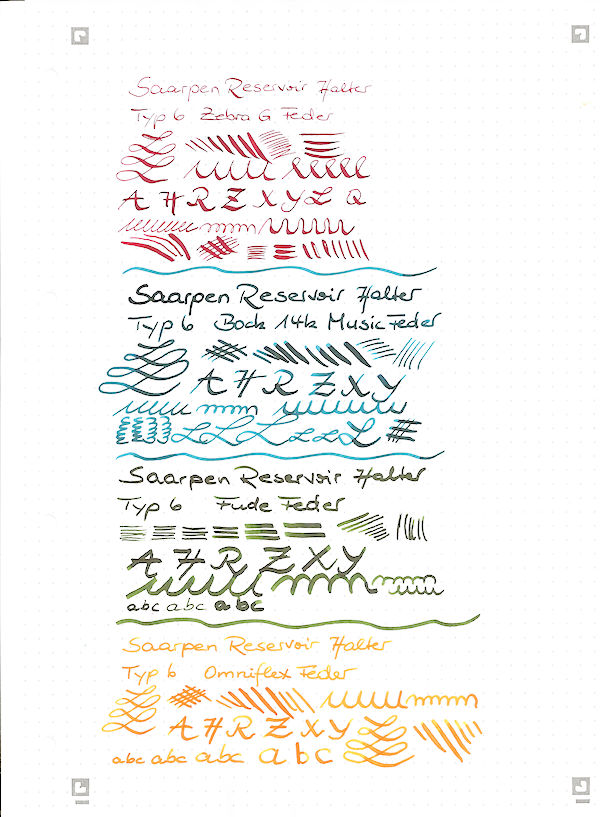 Saarpen Reservoir Halter
Typ 6 Zebra G Feder
A H R Z X Y L Q
Saarpen Reservoir Halter
Typ 6 Bock 14k Music Feder
A H R Z X Y
L L L L L L L #
Saarpen Reservoir Halter
Typ 6 Fude Feder
A H R Z X Y
abc abc abc
Saarpen Reservoir Halter
Typ 6 Omniflex Feder
A H R Z X Y
abc abc abc abc